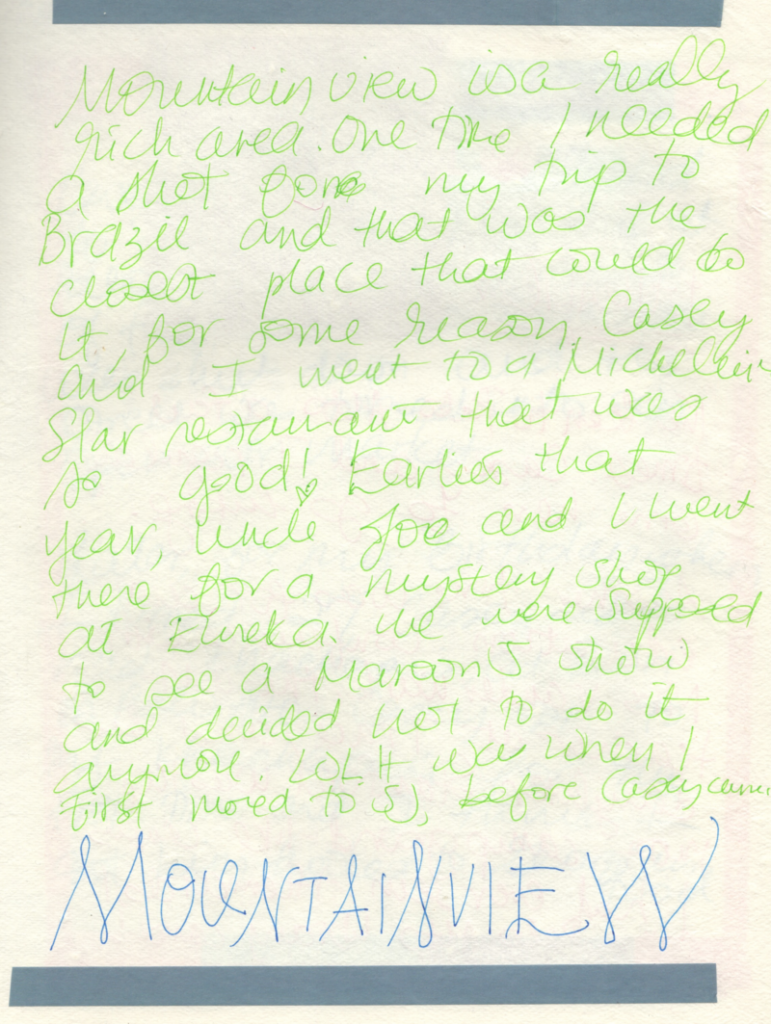 Mountain view is a really
rich area. One time I needed
a shot for my trip to
Brazil and that was the
closest place that could do
it, for some reason. Casey
and I went to a Michelein
Star restaurant that was
so good! Earlier that
year, Uncle Joe and I went
there for a mystery shop
at Eureka. We were supposed
to see a Maroon 5 show
and decided not to do it
anymore. LOL It was when I
First moved to SJ, before Casey came.
MOUNTAINVIEW